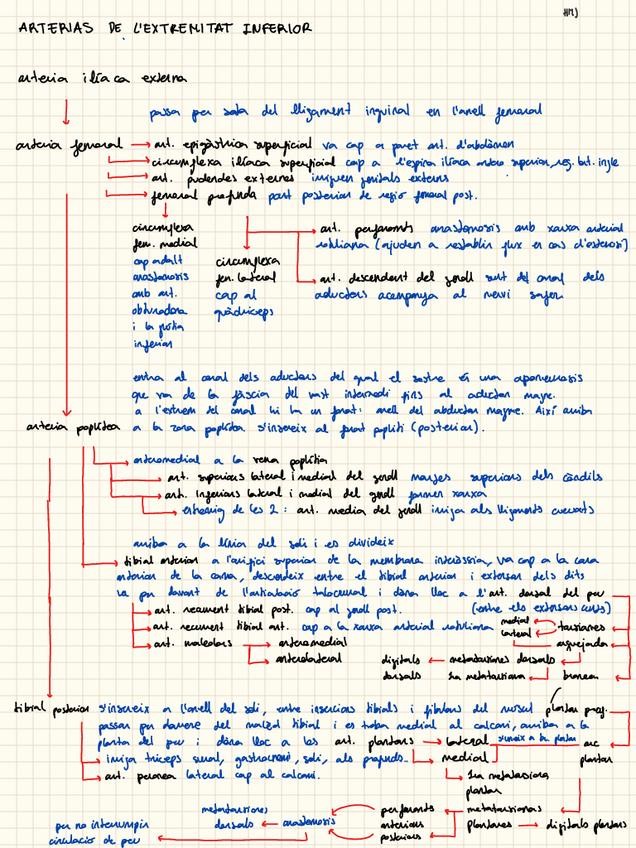 ARTERIAS DE L'EXTREMITAT INFERIOR
arteria ilíaca externa
passa per sota del lligament inguinal en l'anell femoral
arteria femoral → art. epigàstrica superficial va cap a paret ant. d'abdomen
circumflexa ilíaca superficial cap a l'espina ilíaca antero superior, reg. lat. ingle
art. pudendes externes irriguen genitals externs
femoral profunda part posterior de regio femoral post.
circumflexa
fem. medial
cap adult
anastomosis
amb art.
obturadora
i la glútia
inferior
circumflexa
fem. lateral
cap al
quàdriceps
art. perforants anastomosis amb xarxa arterial
rotuliana (ajuden a restablir flux en cas d'esterosi)
art. descendent del genoll surt del canal dels
aductors acompanya al nervi safen
entra al canal dels aductors del qual el sostre és una aponeurosis
que va de la fàscia del vast intermedi fins al aductor magne.
a l'extrem del canal hi ha un forat: anell del abductor magne. Així arriba
arteria poplítea a la zona poplítea s'insereix al forat popliti (posterior).
anteromedial a la vena poplítia
art. superiors lateral i medial del genoll marges superiors dels còndils
art. inferiors lateral i medial del genoll formen xarxa
enmig de les 2: art. media del genoll irriga als lligaments creuats
arriba a la línia del soli i es divideix
tibial anterior a l'orifici superior de la membrana interòssia, va cap a la cara
anterior de la cama, descendeix entre el tibial anterior i extensor dels dits
va per davant de l'articulació talocrural i dóna lloc a l'art. dorsal del peu
(entre els extensors curts)
art. recurrent tibial post. cap al genoll post.
art. recurrent tibial ant. cap a la xarxa arterial rotuliana
art. maleolars → anteromedial
anterolateral
medial
lateral
tarsianes
arquejada
digitals ← metatarsianes dorsals
dorsals
1a metatarsiana
tibial posterior s'insereix a l'anell del soli, entre insercions tibials i fibulars del múscul
plantar prof.
passar per darrere del maleol tibial i es troba medial al calcani, arriba a la
planta del peu i dóna lloc a les art. plantars → lateral s'uneix a la plantar
arc
plantar
medial
irriga triceps sural, gastrocnemi, soli, als profunds.
art. peronea lateral cap al calcani.
1a metatarsiana
plantar
metatarsianes
plantares → digitals plantars
perforants
anteriors
posteriors
anastomosis
metatarsianes
dorsals
per no interrumpir
circulació de peu